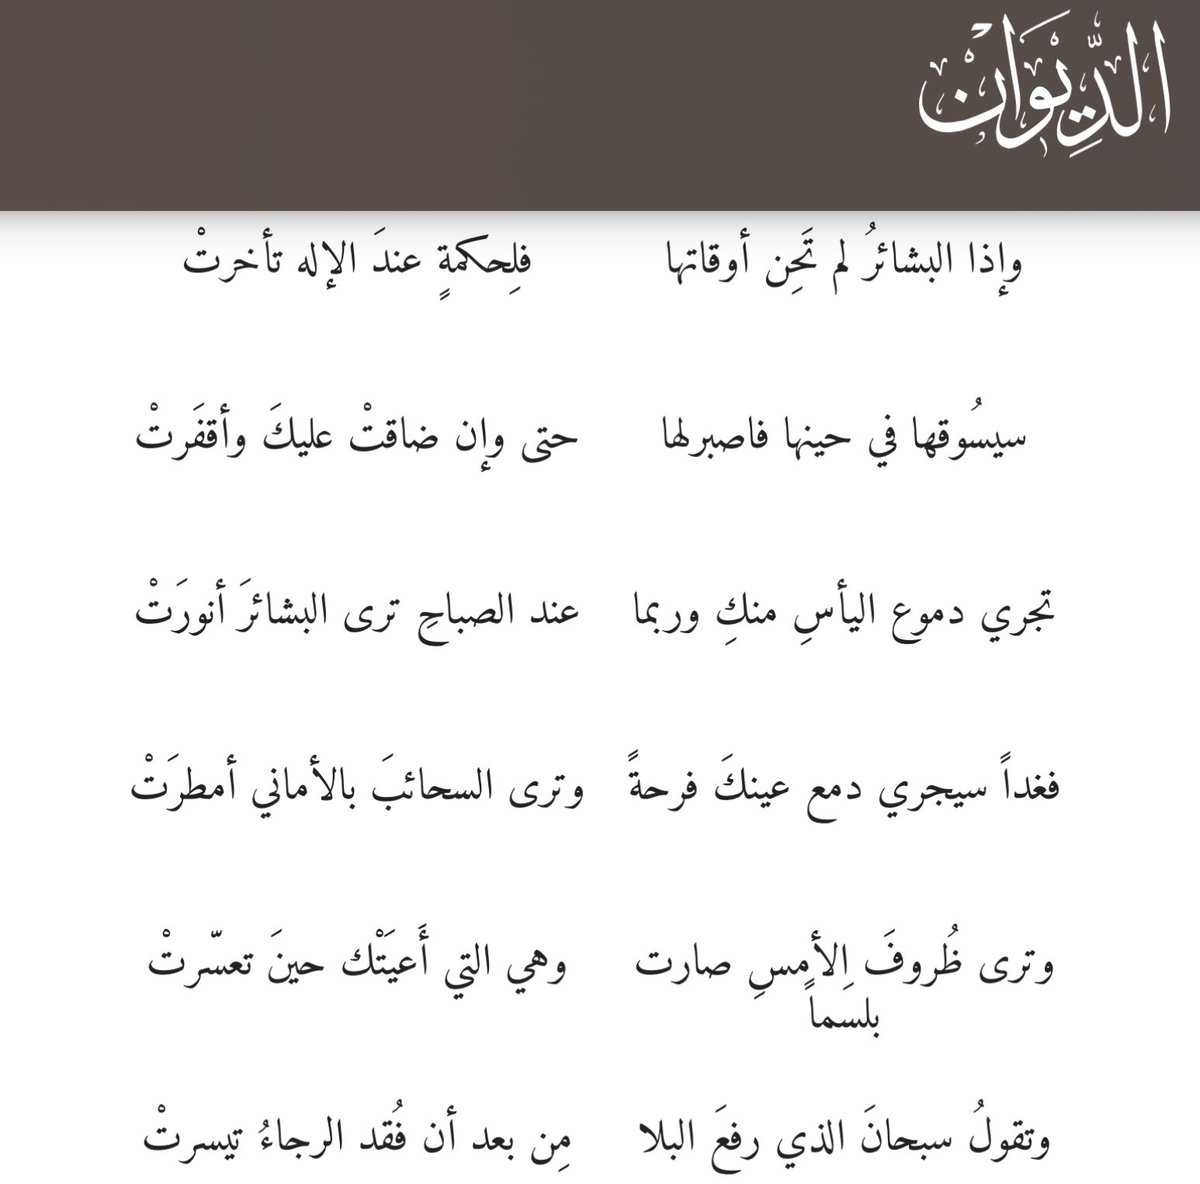 الدِّيوَانْ
وإذا البشائرُ لم تَحِن أوقاتها فلِحكمةٍ عندَ الإله تأخرتْ
سيسُوقها في حينها فاصبرلها حتى وإن ضاقتْ عليكَ وأقفَرتْ
تجري دموع اليأسِ منكِ وربما عند الصباحِ ترى البشائرَ أنورَتْ
فغداً سيجري دمع عينكَ فرحةً وترى السحائبَ بالأماني أمطرَتْ
وترى ظُروفَ الأمسِ صارت بلسَماً وهي التي أَعيَتْك حينَ تعسّرتْ
وتقولُ سبحانَ الذي رفعَ البلا مِن بعد أن فُقد الرجاءُ تيسرتْ